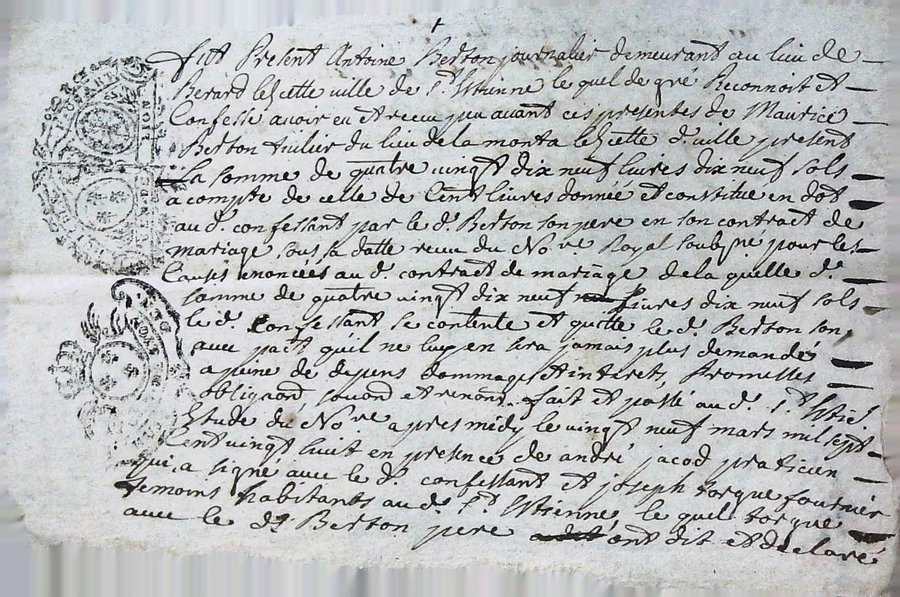 fut Present Antoine Berton journalier demeurant au lieu de
Berard lès cette ville de St. Etienne le quel de gré Reconnoit et
Confesse avoir eu et receu peu avant ces presentes de Maurice
Berton du lieu dela monta lès cette d. ville present
La somme de quatre vingt dix neuf livres dix neuf sols
a compte de celle de Cent livres donnée et constitué en dot
au d. confessant par le d. Berton son pere en son contract de
mariage sous sa datte receu du Nore Royal soubgné pour les
Causes enoncées au d. contract de mariage de la quelle d.
somme de quatre vingt dix neuf livres dix neuf sols
le d. Confessant se contente et quitte le d. Berton son
avec pact quil ne luy en sera jamais plus demandé
a peine de depens dommages et interet, Promesses
obligaond et renond. fait et passé au d. St. Etie.
Etude du Nore apres midy le vingt neuf mars mil sept
Cent vingt huit en presence de andré jacod praticien
qui a signé avec le d. confessant et joseph torque
temoins habitants au d. St. Etienne le quel torque
avec le d. Berton pere ont dit et declaré